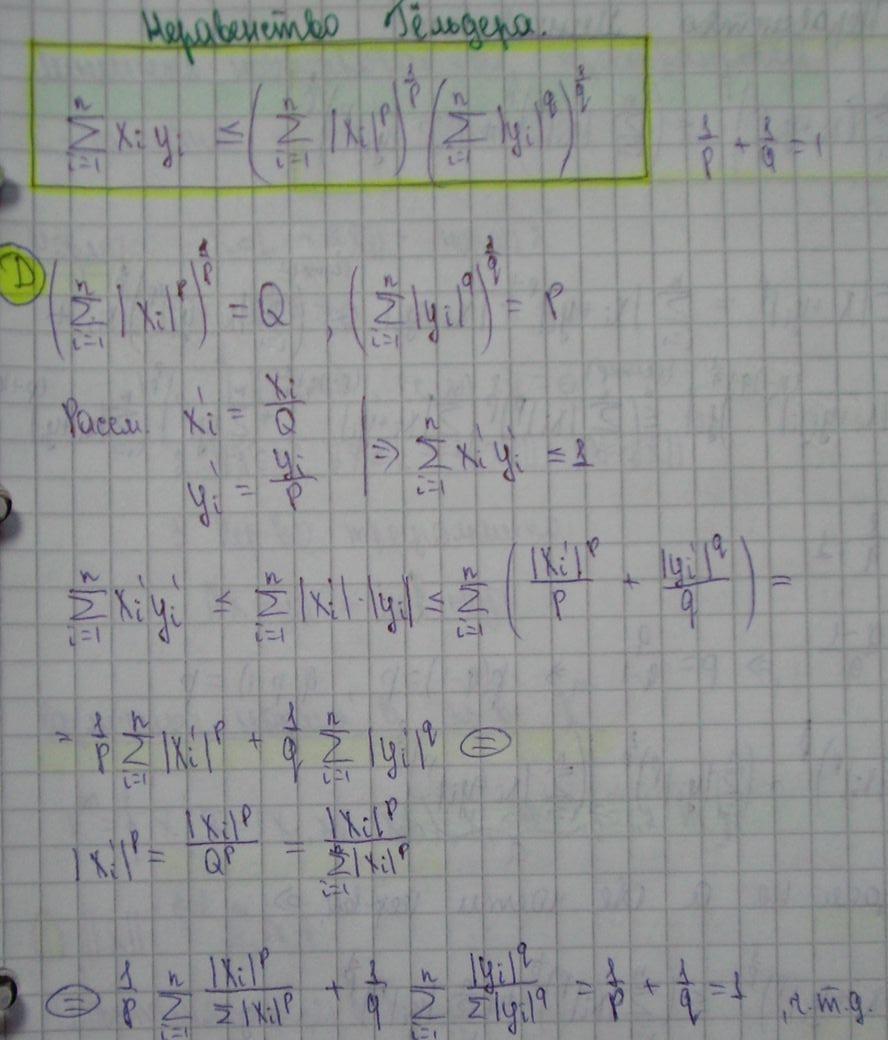 Неравенство Гёльдера.
∑_{i=1}^{n} x_i y_i ≤ (∑_{i=1}^{n} |x_i|^p)^{1/p} (∑_{i=1}^{n} |y_i|^q)^{1/q}   1/p + 1/q = 1
D (∑_{i=1}^{n} |x_i|^p)^{1/p} = Q , (∑_{i=1}^{n} |y_i|^q)^{1/q} = P
Рассм. x_i' = x_i/Q
y_i' = y_i/P | ⇒ ∑_{i=1}^{n} x_i' y_i' ≤ 1
∑_{i=1}^{n} x_i' y_i' ≤ ∑_{i=1}^{n} |x_i'|·|y_i'| ≤ ∑_{i=1}^{n} (|x_i'|^p/p + |y_i'|^q/q) =
= 1/p ∑_{i=1}^{n} |x_i'|^p + 1/q ∑_{i=1}^{n} |y_i'|^q ⊜
|x_i'|^p = |x_i|^p/Q^p = |x_i|^p/∑_{i=1}^{n} |x_i|^p
⊜ 1/p ∑_{i=1}^{n} |x_i|^p/∑|x_i|^p + 1/q ∑_{i=1}^{n} |y_i|^q/∑|y_i|^q = 1/p + 1/q = 1 , ч.т.д.